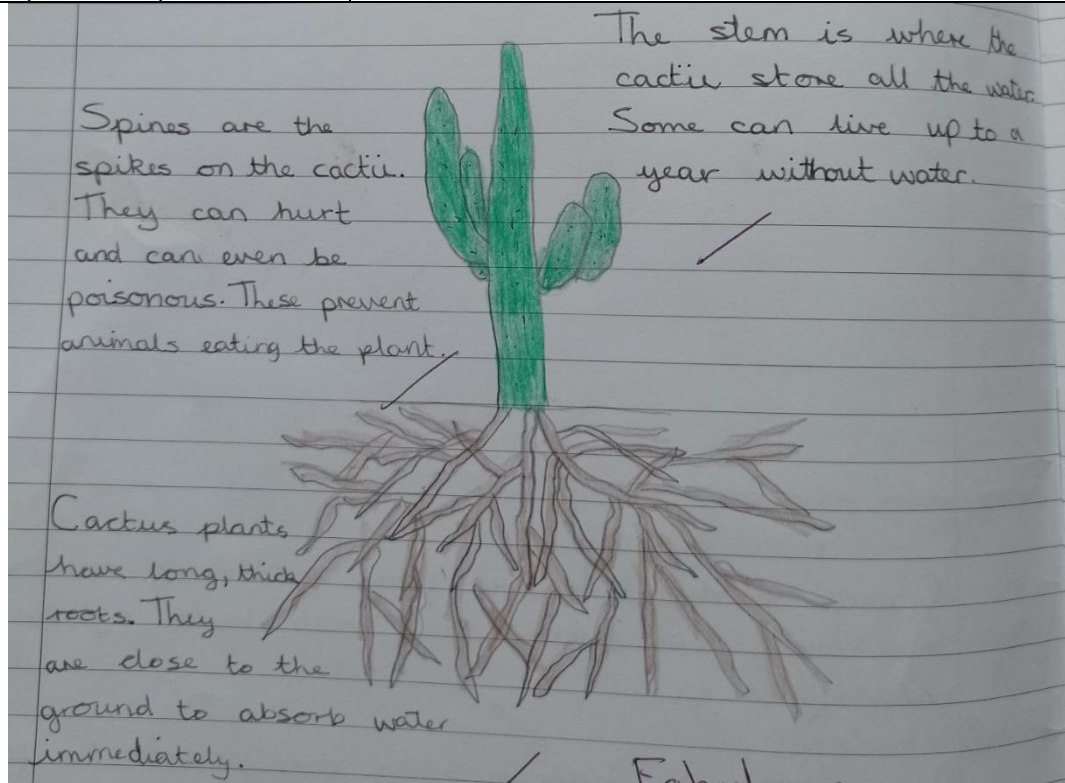 The stem is where the
cactii store all the water.
Some can live up to a
year without water.
Spines are the
spikes on the cactii.
They can hurt
and can even be
poisonous. These prevent
animals eating the plant.
Cactus plants
have long, thick
roots. They
are close to the
ground to absorb water
immediately.